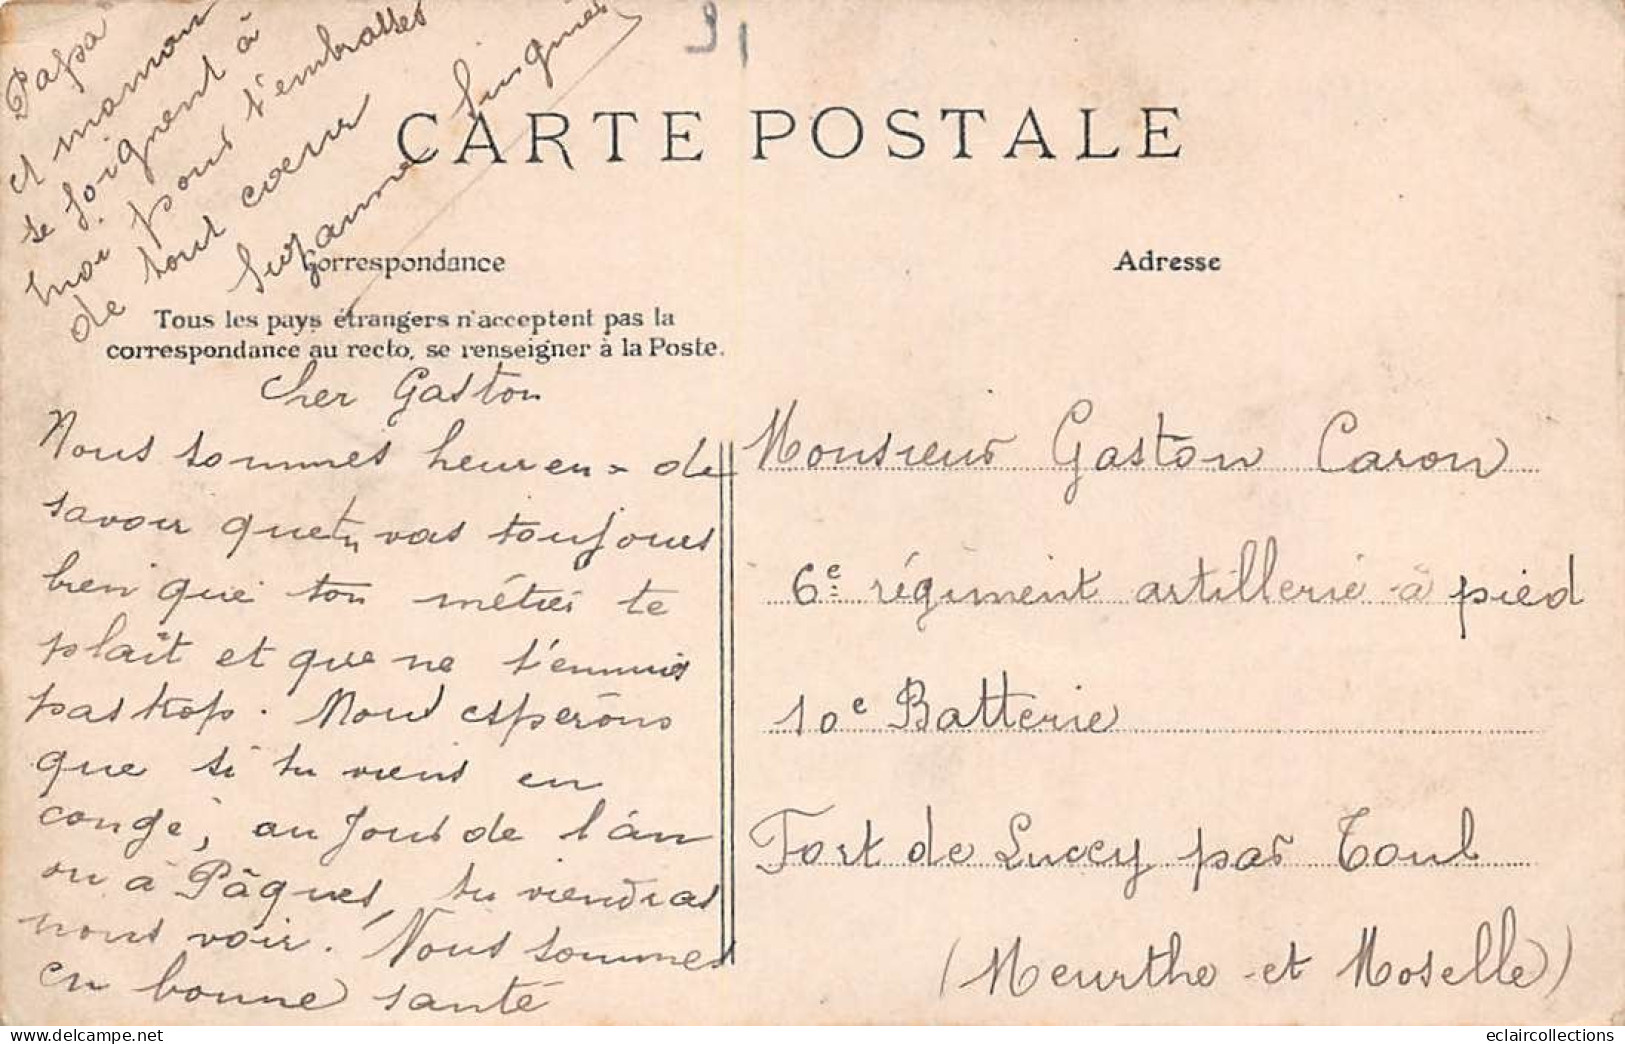 CARTE POSTALE
Correspondance
Tous les pays étrangers n'acceptent pas la
correspondance au recto, se renseigner à la Poste.
Cher Gaston
Nous sommes heureux de
savoir que tu vas toujours
bien que ton métier te
plaît et que ne t'ennuis
pas trop. Nous espérons
que si tu viens en
congé, au jour de l'an
ou à Pâques, tu viendras
nous voir. Nous sommes
en bonne santé
Papa
et maman
se joignent à
moi pour t'embrasser
de tout coeur
Suzanne
Adresse
Monsieur Gaston Caron
6e régiment artillerie à pied
10e Batterie
Fort de Lucey par Toul
(Meurthe et Moselle)
eclaircollections